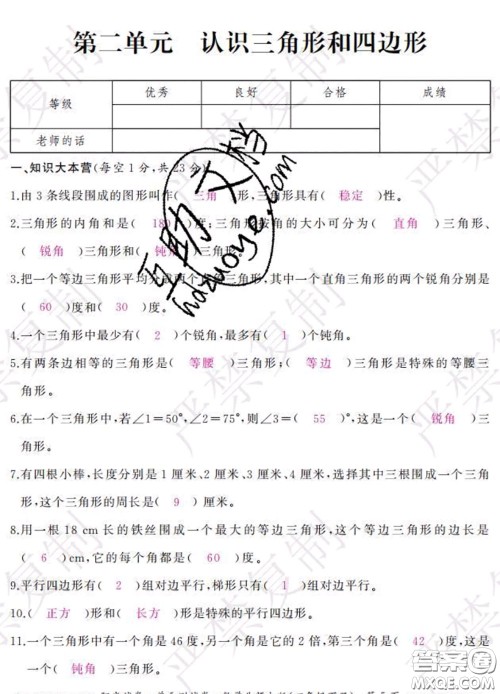 第二单元 认识三角形和四边形
等级 优秀 良好 合格 成绩
老师的话
一、知识大本营(每空1分,共23分)
1.由3条线段围成的图形叫作( 三角 )形,三角形具有( 稳定 )性。
2.三角形的内角和是( 180 )度;三角形按角的大小可分为( 直角 )三角形、
( 锐角 )三角形和( 钝角 )三角形。
3.把一个等边三角形平均分成两个直角三角形,其中一个直角三角形的两个锐角分别是
( 60 )度和( 30 )度。
4.一个三角形中最少有( 2 )个锐角,最多有( 1 )个钝角。
5.有两条边相等的三角形是( 等腰 )三角形;( 等边 )三角形是特殊的等腰三
角形。
6.在一个三角形中,若∠1=50°,∠2=75°,则∠3=( 55 )°,这是一个( 锐角 )三
角形。
7.有四根小棒,长度分别是1厘米、2厘米、3厘米、4厘米,选择其中三根围成一个三角
形,这个三角形的周长是( 9 )厘米。
8.用一根18 cm长的铁丝围成一个最大的等边三角形,这个等边三角形的边长是
( 6 )cm,它的每个角都是( 60 )度。
9.平行四边形有( 2 )组对边平行,梯形只有( 1 )组对边平行。
10.( 正方 )形和( 长方 )形是特殊的平行四边形。
11.一个三角形中有一个角是46度,另一个角是它的2倍,第三个角是( 42 )度,这是
一个( 钝角 )三角形。
互助文档
hazuoye.com
严禁复制
严禁复制
严禁复制